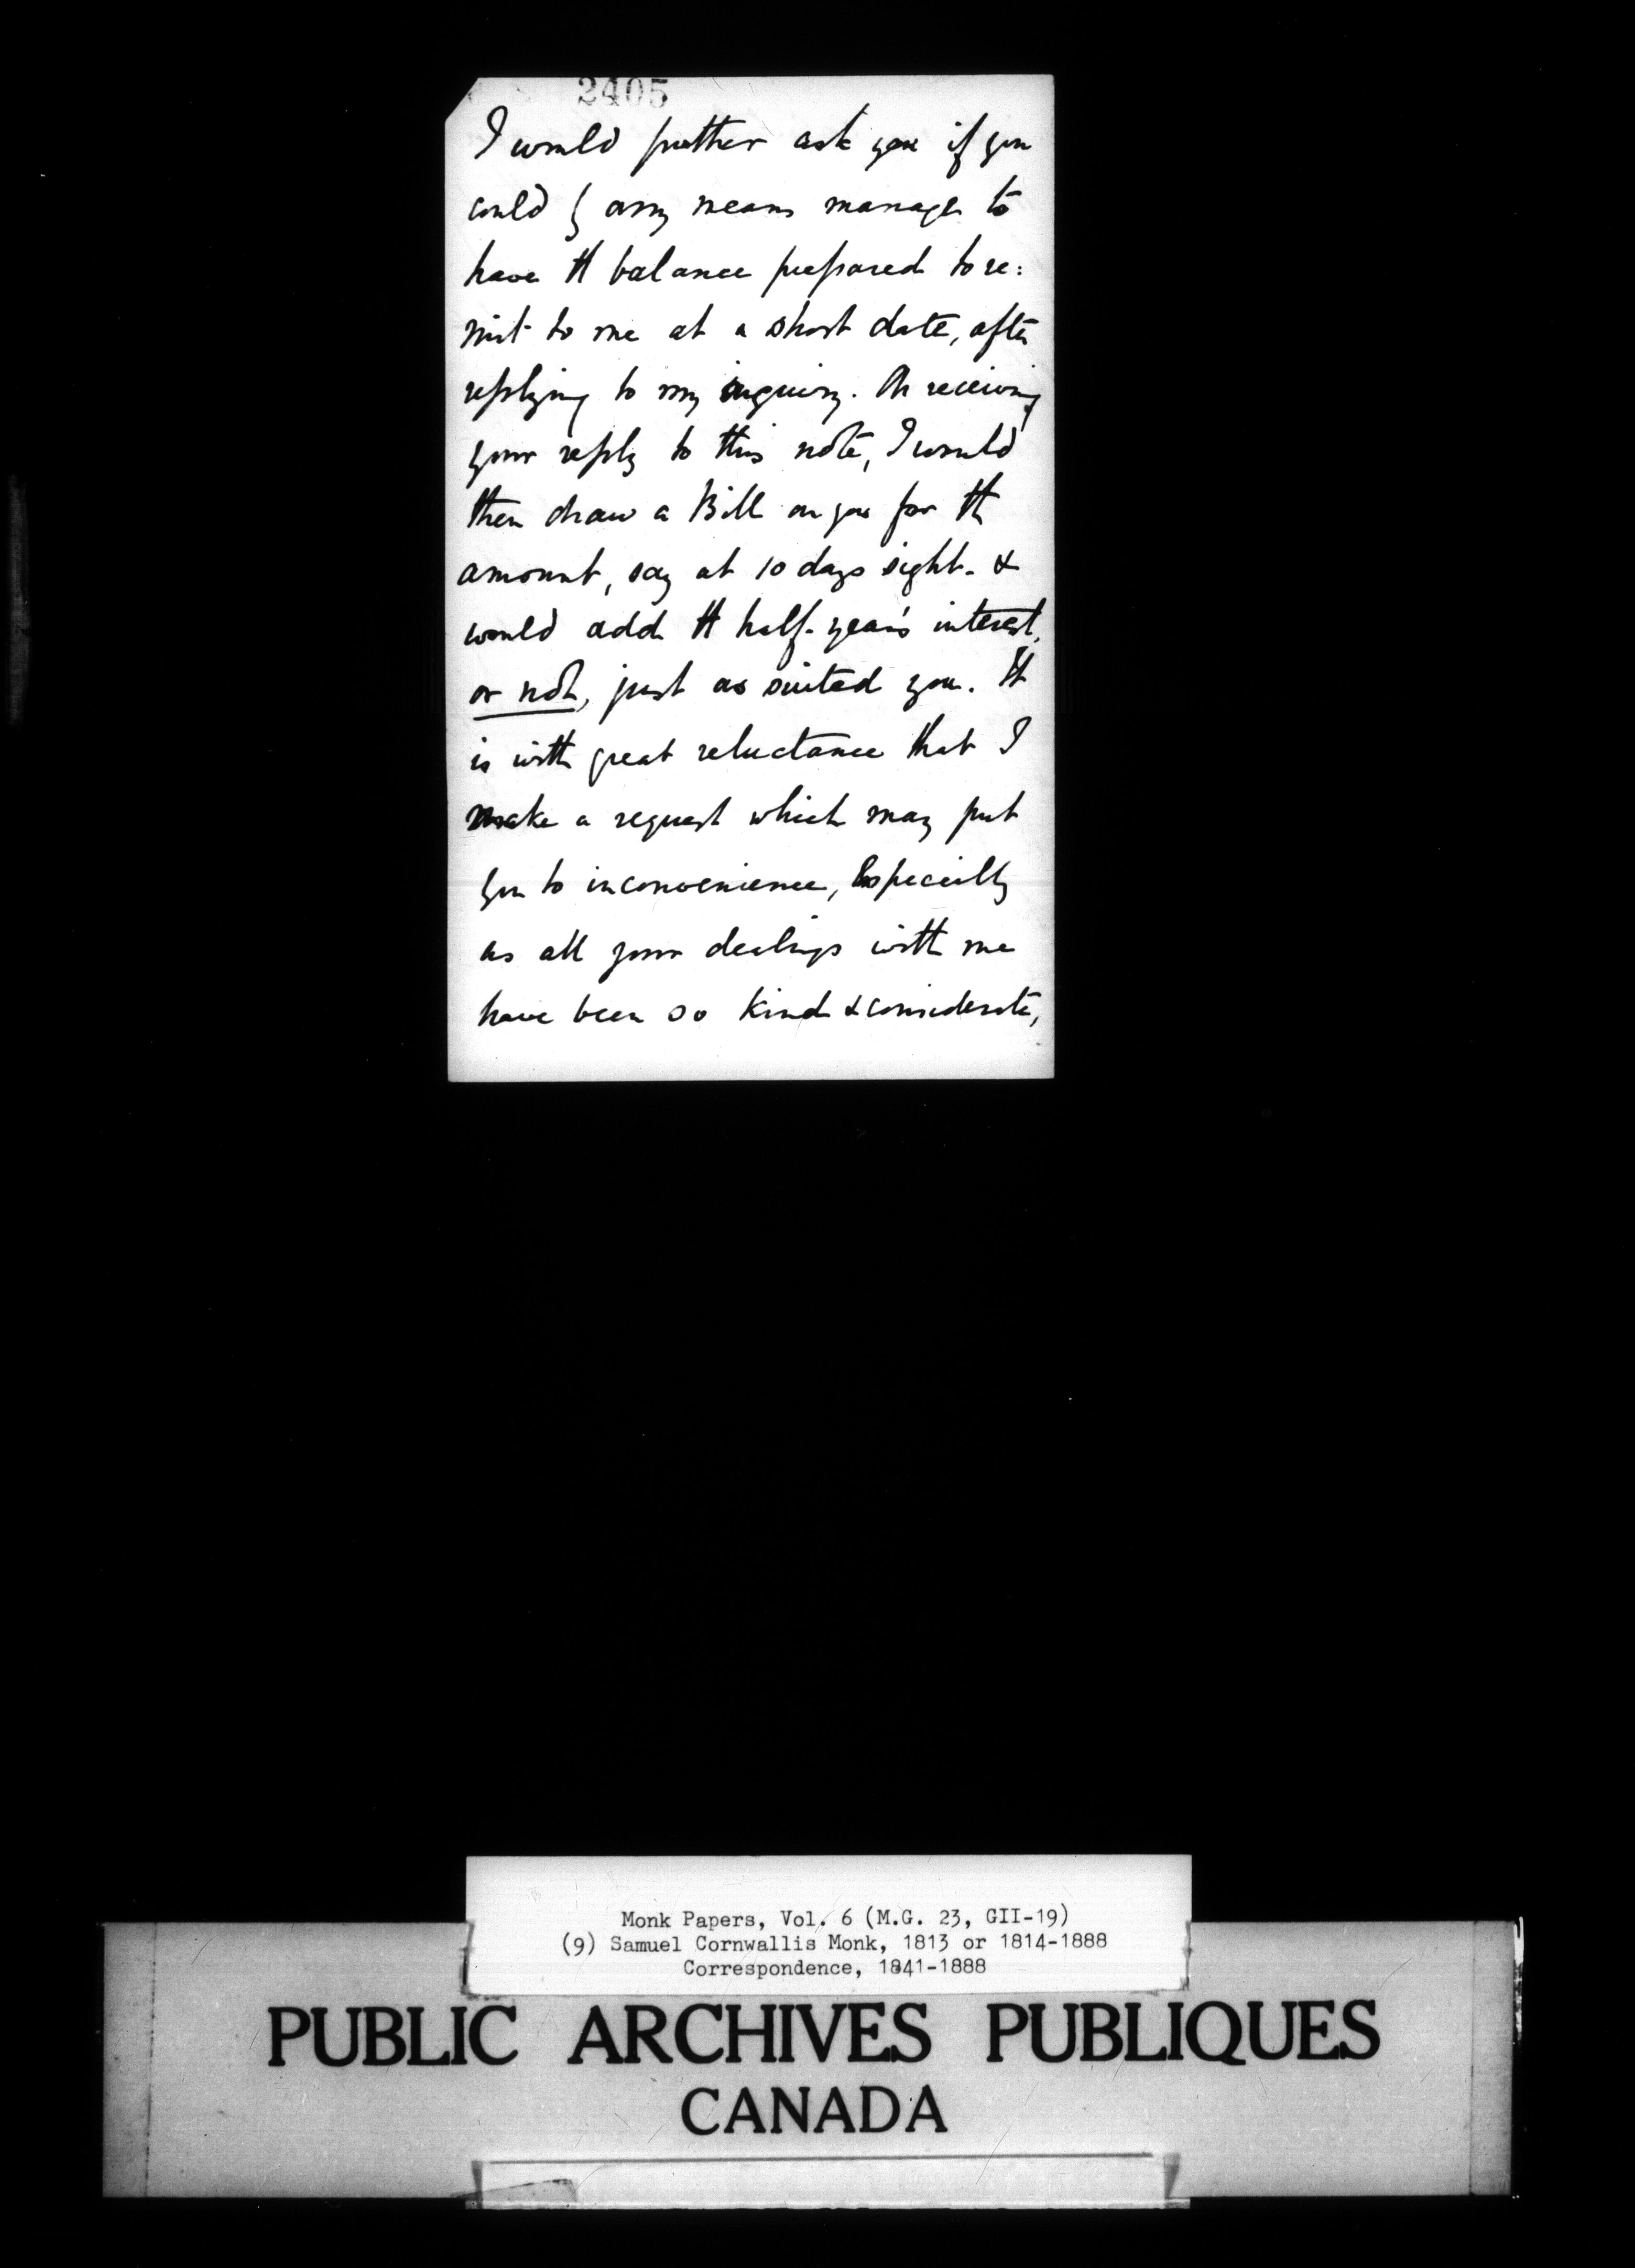 2405
I would further ask you if you
could by any means manage to
have th balance prepared to re:
mit to me at a short date, after
replying to my inquiry. On receiving
your reply to this note, I would
then draw a Bill on you for th
amount, say at 10 days sight. &
would add th half-year's interest,
or not, just as suited you. It
is with great reluctance that I
make a request which may put
you to inconvenience, Especially
as all your dealings with me
have been so kind & considerate,
Monk Papers, Vol. 6 (M.G. 23, GII-19)
(9) Samuel Cornwallis Monk, 1813 or 1814-1888
Correspondence, 1841-1888
PUBLIC ARCHIVES PUBLIQUES
CANADA